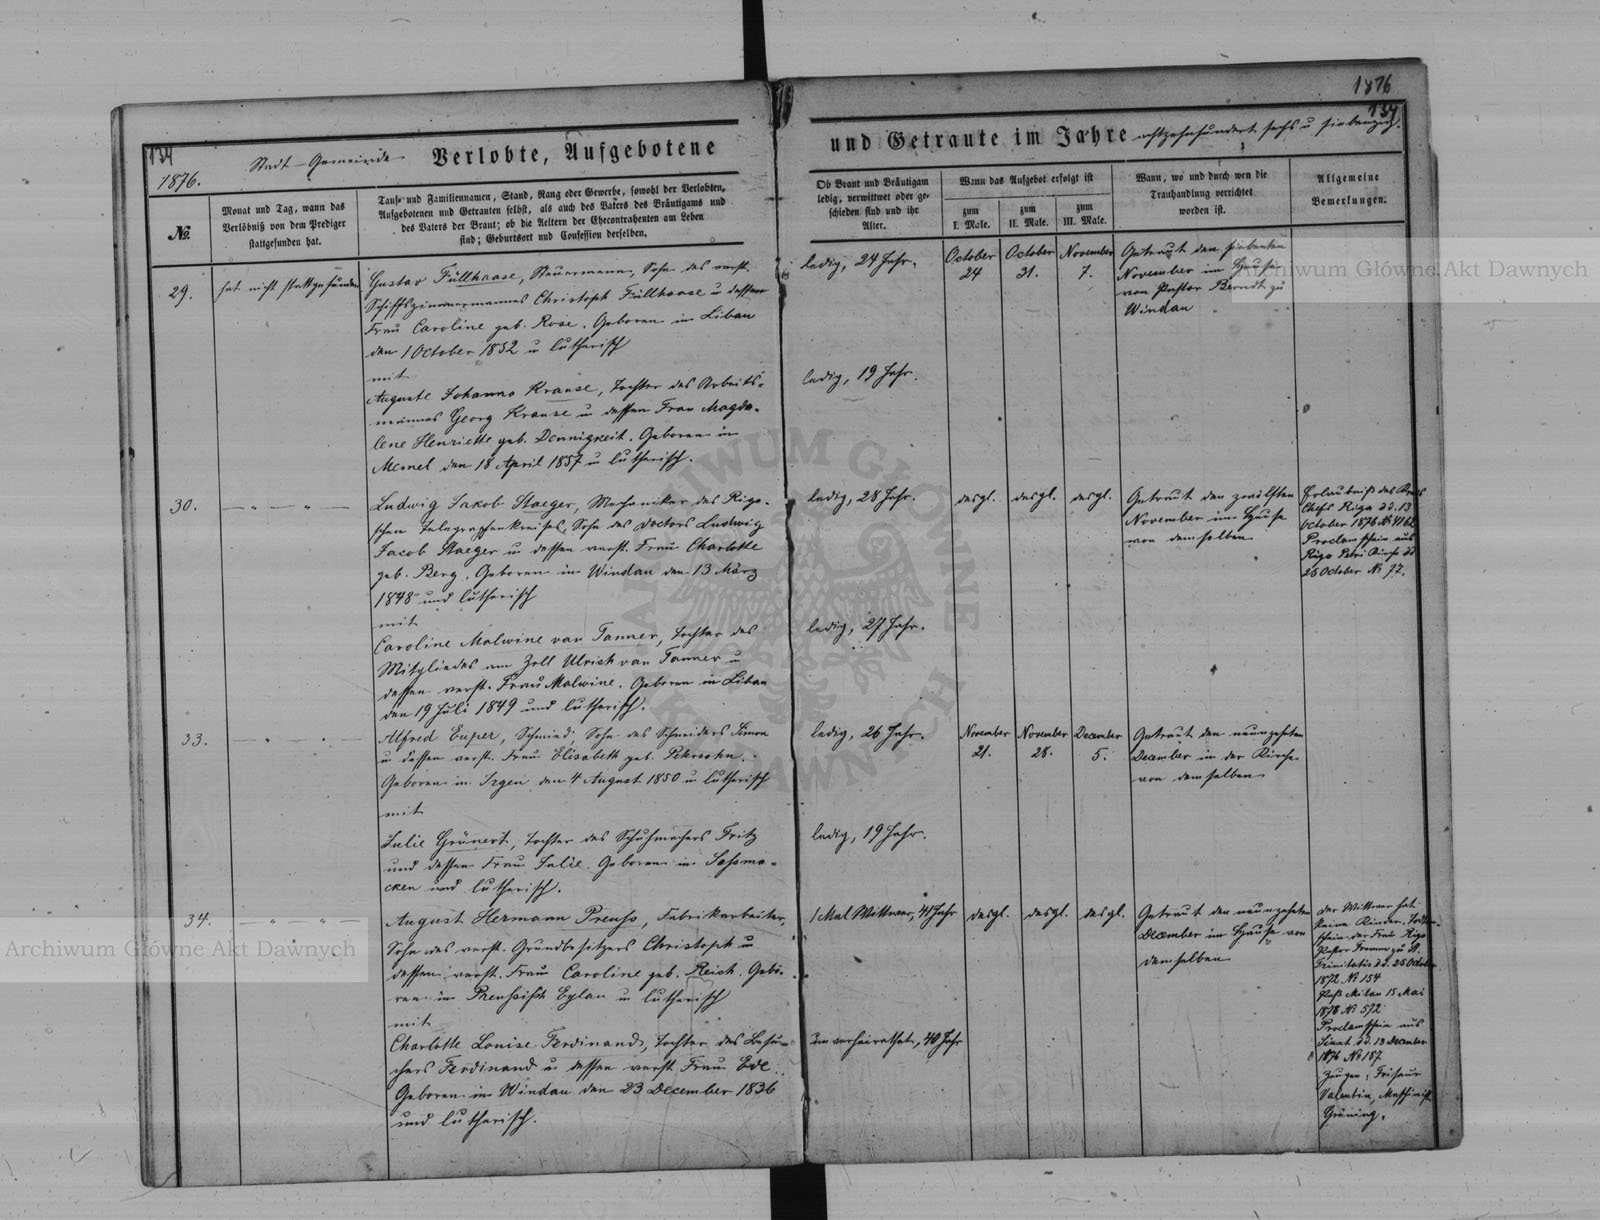 1876
134
137
Stadt-Gemeinde Verlobte, Aufgebotene
und Getraute im Jahre achtzehnhundert sechs u siebenzig.
1876.
№.
Monat und Tag, wann das
Verlöbniß von dem Prediger
stattgefunden hat.
Tauf- und Familiennamen, Stand, Rang oder Gewerbe, sowohl der Verlobten,
Aufgebotenen und Getrauten selbst, als auch des Vaters des Bräutigams und
des Vaters der Braut; ob die Aeltern der Ehecontrahenten am Leben
sind; Geburtsort und Confession derselben.
Ob Braut und Bräutigam
ledig, verwittwet oder ge-
schieden sind und ihr
Alter.
Wann das Aufgebot erfolgt ist
zum
I. Male.
zum
II. Male.
zum
III. Male.
Wann, wo und durch wen die
Trauhandlung verrichtet
worden ist.
Allgemeine
Bemerkungen.
29.
hat nicht stattgefunden
Gustav Füllhaase, Steuermann, Sohn des verst.
Schiffszimmermannes Christoph Füllhaase u dessen
Frau Caroline geb. Rose. Geboren in Libau
den 1 October 1852 u lutherisch
mit
Auguste Johanna Krause, Tochter des Arbeits-
mannes Georg Krause u dessen Frau Magda-
lene Henriette geb. Dennigkeit. Geboren in
Memel den 18 April 1857 u lutherisch.
ledig, 24 Jahr.
ledig, 19 Jahr.
October
24
October
31.
November
7.
Getraut den siebenten
November im Hause
von Pastor Berndt zu
Windau
30.
— " — " —
Ludwig Jakob Staeger, Mechaniker des Riga-
schen Telegraphenkreises, Sohn des Doctors Ludwig
Jacob Staeger u dessen verst. Frau Charlotte
geb. Berg. Geboren in Windau den 13 März
1848 und lutherisch
mit
Caroline Malwine van Tanner, Tochter des
Mitgliedes am Zoll Ulrich van Tanner u
dessen verst. Frau Malwine. Geboren in Libau
den 19 Juli 1849 und lutherisch.
ledig, 28 Jahr.
ledig, 27 Jahr.
desgl.
desgl.
desgl.
Getraut den zwölften
November im Hause
von demselben
Erlaubniß des
Chefs Riga d.d. 13
October 1876 №
Proclamschein aus
Riga Petri Kirche dd
25 October № 77.
33.
— " — " —
Alfred Euper, Schmied, Sohn des Schneiders Simon
u dessen verst. Frau Elisabeth geb.
Geboren in Irgen den 4 August 1850 u lutherisch
mit
Julie Grünert, Tochter des Schuhmachers Fritz
und dessen Frau Julie. Geboren in Sassma-
cken und lutherisch.
ledig, 26 Jahr.
ledig, 19 Jahr.
November
21.
November
28.
December
5.
Getraut den neunzehnten
December in der Kirche
von demselben
34.
— " — " —
August Hermann Preuss, Fabrikarbeiter,
Sohn des verst. Grundbesitzers Christoph u
dessen verst. Frau Caroline geb. Reich. Gebo-
ren in Preussisch Eylau u lutherisch
mit
Charlotte Louise Ferdinand, Tochter des Besu-
chers Ferdinand u dessen verst. Frau Ede.
Geboren in Windau den 23 December 1836
und lutherisch.
1 Mal Wittwer, 41 Jahr
unverheirathet, 40 Jahr
desgl.
desgl.
desgl.
Getraut den neunzehnten
December im Hause von
demselben
Der Wittwer hat
keine Kinder. Todten-
schein der Frau Riga
Pastor zu St.
Trinitatis d.d. 25 October
1872 № 154
Paß Mitau 15 Mai
1876 № 572
Proclamschein aus
d.d. 13 December
1876 № 157
Zeugen: Friseur
Valentin, Maschinist
Grüning.
Archiwum Główne Akt Dawnych
Archiwum Główne Akt Dawnych
ARCHIWUM GŁÓWNE AKT DAWNYCH